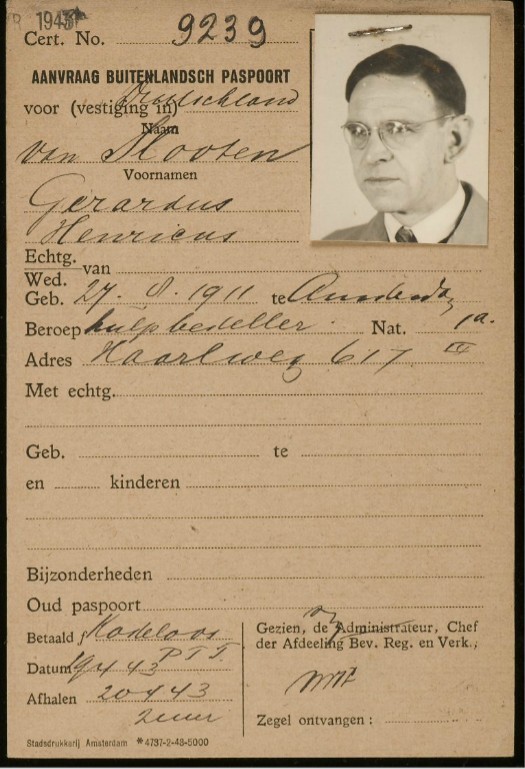 1943
Cert. No. 9239
AANVRAAG BUITENLANDSCH PASPOORT
voor (vestiging in) Duitschland
Naam
van Slooten
Voornamen
Gerardus
Henricus
Echtg. van
Wed.
Geb. 27. 8. 1911 te Amsterdam
Beroep hulpbesteller. Nat. 1a.
Adres Haarlweg 617 III
Met echtg.
Geb. te
en kinderen
Bijzonderheden
Oud paspoort
Betaald f Kosteloos
P.T.T.
Datum 19 4 43
Afhalen 20 4 43
2 uur
Gezien, de Administrateur, Chef
der Afdeeling Bev. Reg. en Verk.,
Zegel ontvangen :
Stadsdrukkerij Amsterdam * 4737-2-43-5000